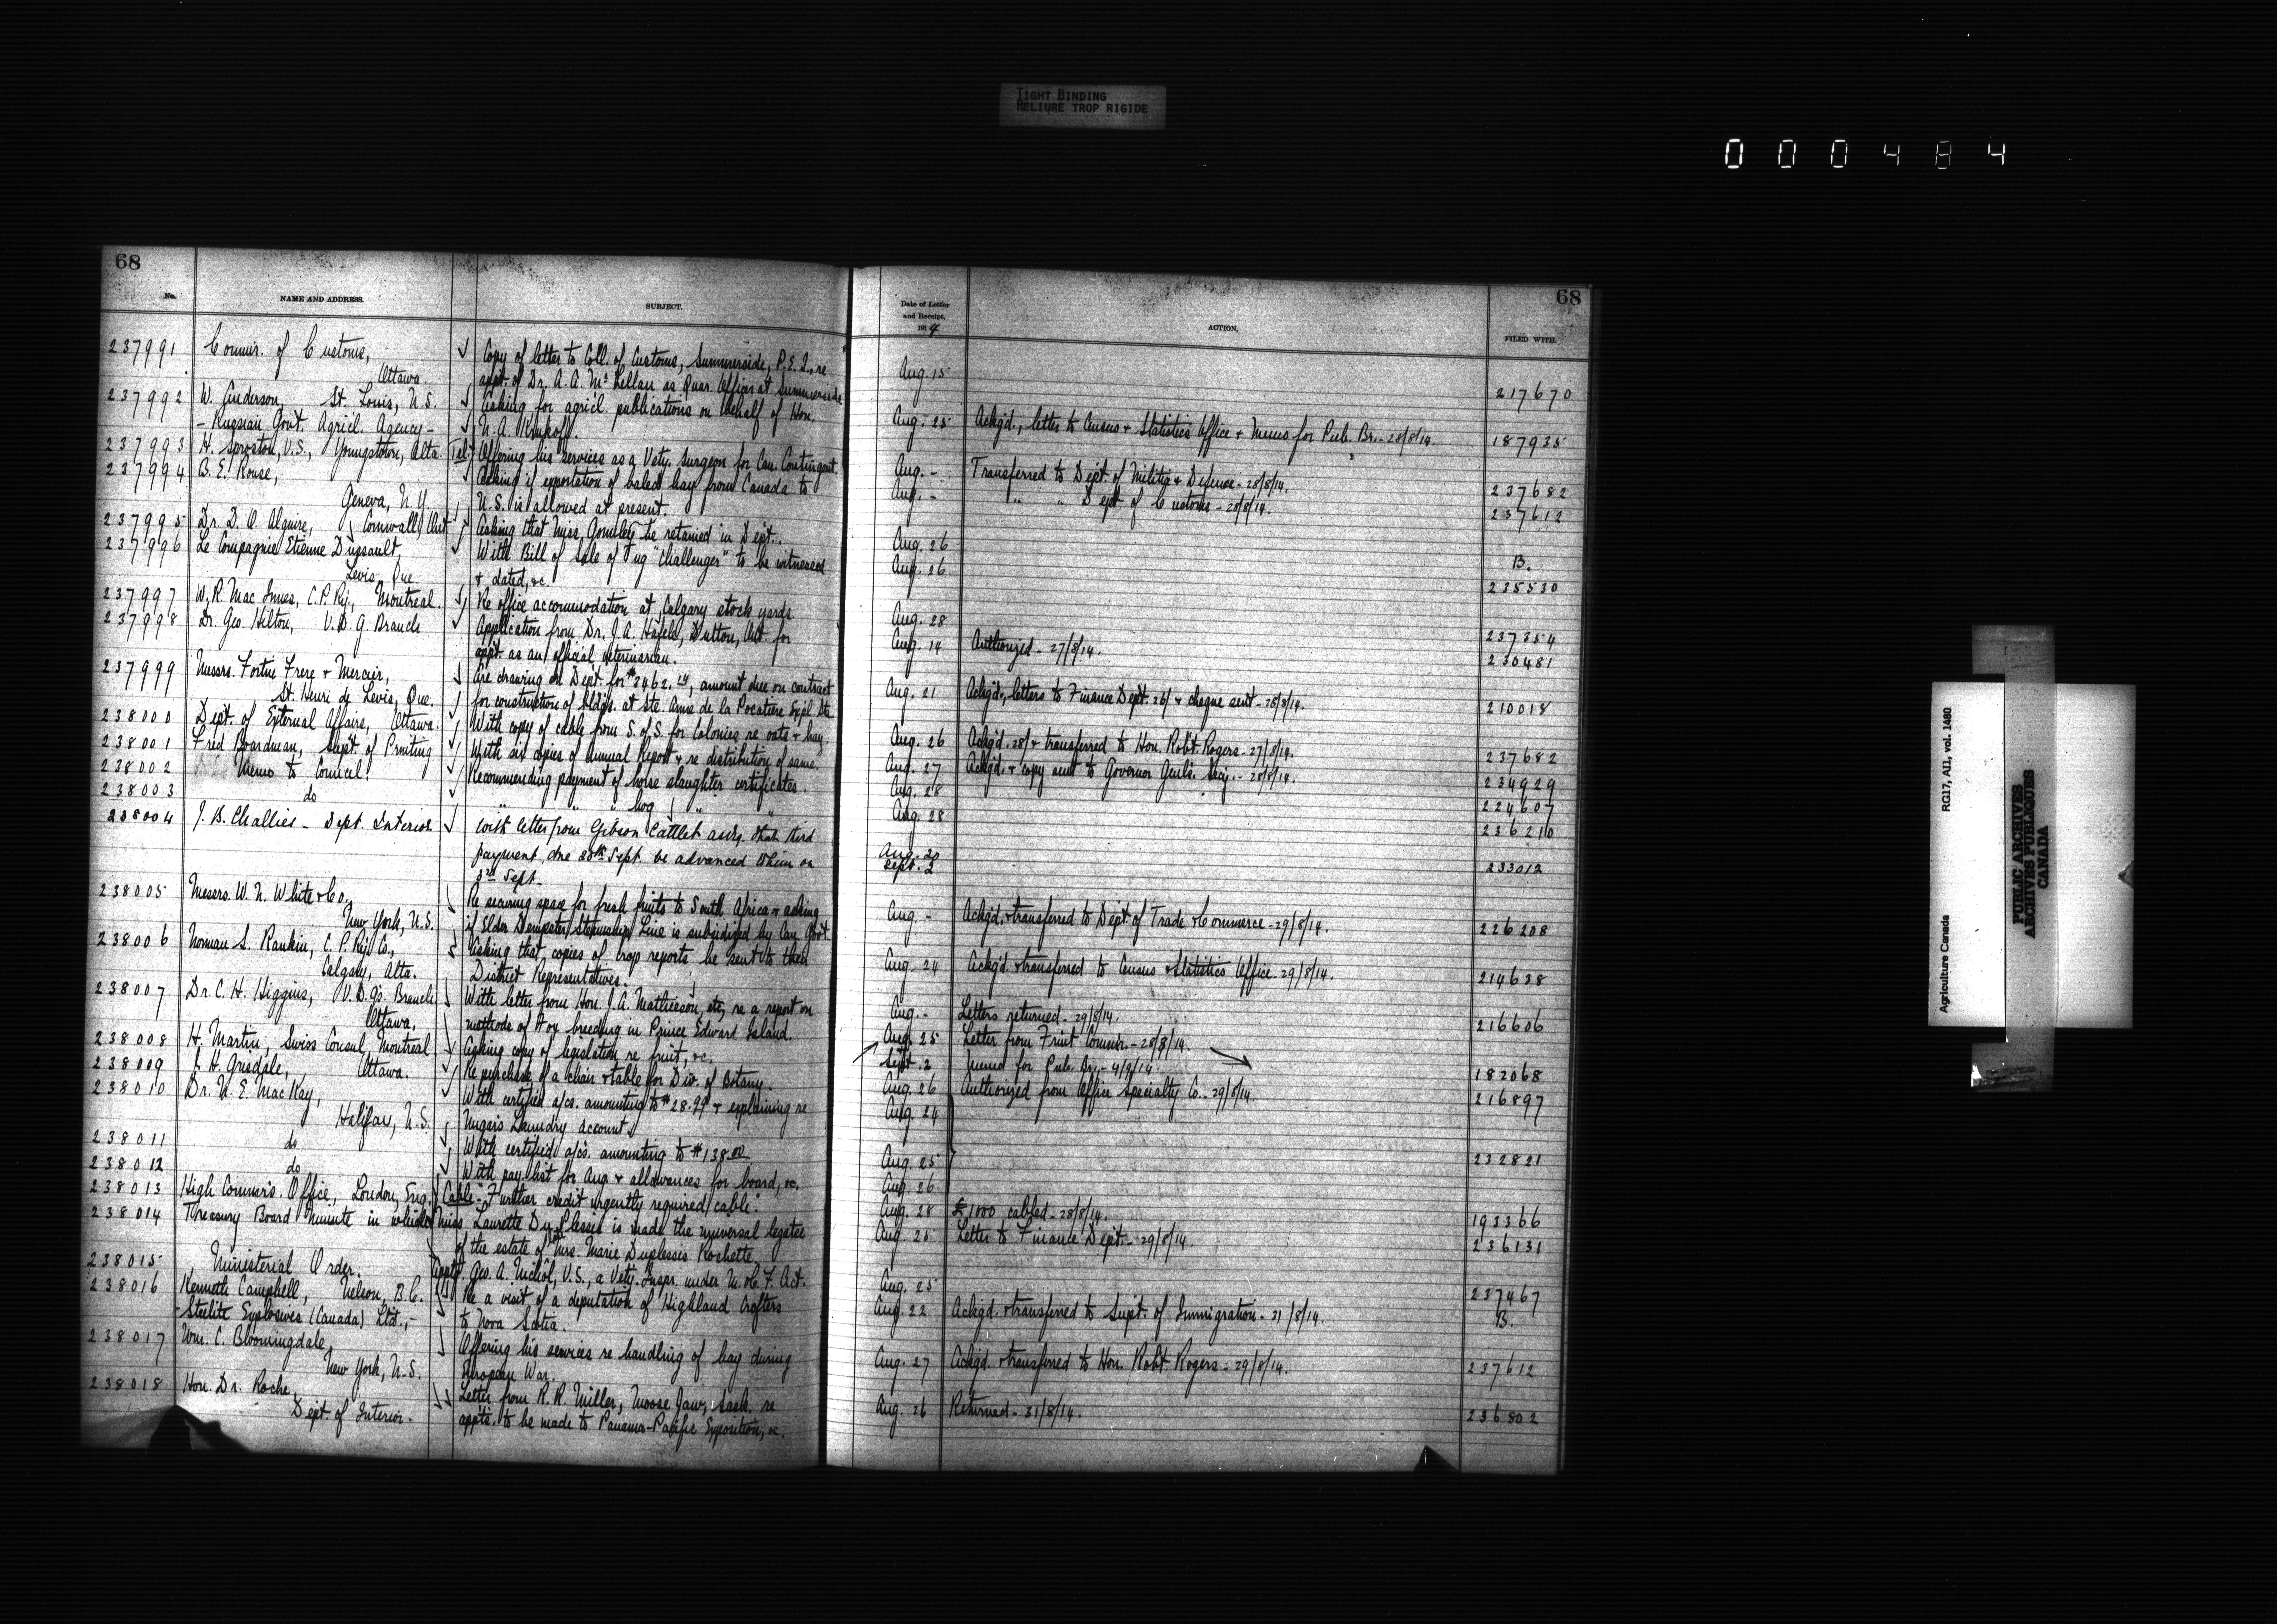 TIGHT BINDING
RELIURE TROP RIGIDE
000484
68
No.
NAME AND ADDRESS.
SUBJECT.
237991 Commr. of Customs, Copy of letter to Coll. of Customs, Summerside, P.E.I., re
Ottawa. appt. of Dr. A. A. McLellan as Quar. Officer at Summerside
237992 W. Anderson, St. Louis, U.S. Asking for agricl. publications on behalf of Hon.
- Russian Govt. Agricl. Agency - N. A. Krukoff.
237993 H. Sproston, V.S., Youngstown, Alta. Tel. Offering his services as a Vety. Surgeon for Can. Contingent.
237994 B. E. Rouse, Asking if exportation of baled hay from Canada to
Geneva, N.Y. U.S. is allowed at present.
237995 Dr. D. O. Alguire, Cornwall, Ont. Asking that Miss Gormley be retained in Dept.
237996 Le Compagnie Etienne Dussault, With Bill of Sale of Tug "Challenger" to be witnessed
Levis, Que. & dated, &c.
237997 W. R. Mac Innes, C.P. Ry., Montreal. Re office accommodation at Calgary stock yards
237998 Dr. Geo. Hilton, V.D.G. Branch Application from Dr. J. A. Hafele, Dutton, Ont. for
appt. as an official veterinarian.
237999 Messrs. Fortin Frere & Mercier, Are drawing on Dept. for $2462. , amount due on contract
St. Henri de Levis, Que. for construction of bldgs. at Ste. Anne de la Pocatiere Expl. Stn.
238000 Dept. of External Affairs, Ottawa. With copy of cable from S. of S. for Colonies re oats & hay.
238001 Fred Boardman, Supt. of Printing With six copies of Annual Report & re distribution of same.
238002 Memo to Council. Recommending payment of horse slaughter certificates.
238003 do " " " hog " "
238004 J. B. Challies - Dept. Interior With letter from Gibson Cattlet asdg. that third
payment, due 20th Sept. be advanced to him on
3rd Sept.
238005 Messrs. W. N. White & Co. Re securing space for fresh fruits to South Africa & asking
New York, U.S. if Elder Dempster Steamship Line is subsidized by Can. Govt.
238006 Norman S. Rankin, C. P. Ry. Co., Asking that copies of crop reports be sent to their
Calgary, Alta. District Representatives.
238007 Dr. C. H. Higgins, V.D.G's. Branch With letter from Hon. J. A. Mathieson, etc, re a report on
Ottawa, methods of Fox breeding in Prince Edward Island.
238008 H. Martin, Swiss Consul, Montreal Asking copy of legislation re fruit, &c.
238009 J. H. Grisdale, Ottawa. Re purchase of a chair & table for Div. of Botany.
238010 Dr. N. E. MacKay, With certified a/cs. amounting to $28.99 & explaining re
Halifax, N.S. Ungar's Laundry account
238011 do With certified a/cs. amounting to $138.00
238012 do With pay list for Aug. & allowances for board, &c.
238013 High Commr's. Office, London, Eng. Cable - "Further credit urgently required cable".
238014 Treasury Board Minute in which Miss Laurette Du Plessis is made the universal legatee
of the estate of Mrs. Marie Duplessis Rochette.
238015 Ministerial Order. Apptg. Geo. A. Nichol, V.S., a Vety. Inspr. under M. & C. F. Act.
238016 Kenneth Campbell, Nelson, B.C. Re a visit of a deputation of Highland Crofters
- Steelite Explosives (Canada) Ltd., - to Nova Scotia.
238017 Wm. C. Bloomingdale, Offering his services re handling of hay during
New York, U.S. European War.
238018 Hon. Dr. Roche, Letter from R. R. Miller, Moose Jaw, Sask. re
Dept. of Interior. appts. to be made to Panama-Pacific Exposition, &c.
68
Date of Letter
and Receipt,
1914
ACTION.
FILED WITH.
Aug. 15 217670
Aug. 25 Ackg'd., letter to Census & Statistics Office & Memo for Pub. Br. - 28/8/14. 187935
Aug. - Transferred to Dept. of Militia & Defence - 28/8/14. 237682
Aug. - " " Dept. of Customs - 28/8/14. 237612
Aug. 26 B.
Aug. 26 235530
Aug. 28 237354
Aug. 14 Authorized - 27/8/14. 230481
Aug. 21 Ackg'd., letters to Finance Dept. 26/ & cheque sent - 28/8/14. 210018
Aug. 26 Ackg'd. 28/ & transferred to Hon. Robt. Rogers - 27/8/14. 237682
Aug. 27 Ackg'd. & copy sent to Governor Genl's. Secy. - 28/8/14. 234929
Aug. 28 224607
Aug. 28 236210
Aug. 20
Sept. 2 233012
Aug. - Ackg'd. & transferred to Dept. of Trade & Commerce - 29/8/14. 226208
Aug. 24 Ackg'd. & transferred to Census & Statistics Office - 29/8/14. 214638
Aug. - Letters returned - 29/8/14. 216606
Aug. 25 Letter from Fruit Commr. - 28/8/14.
Sept. 2 Memo for Pub. Br. - 4/9/14. 182068
Aug. 26 Authorized from Office Specialty Co. - 29/8/14. 216897
Aug. 24
Aug. 25 232821
Aug. 26
Aug. 28 £1000 cabled - 28/8/14. 193366
Aug. 20 Letter to Finance Dept. - 29/8/14. 236131
Aug. 25 237467
Aug. 22 Ackg'd. & transferred to Supt. of Immigration - 31/8/14. B.
Aug. 27 Ackg'd. & transferred to Hon. Robt. Rogers - 29/8/14. 237612
Aug. 26 Returned - 31/8/14. 236802
Agriculture Canada RG17, AII, vol. 1480
PUBLIC ARCHIVES
ARCHIVES PUBLIQUES
CANADA